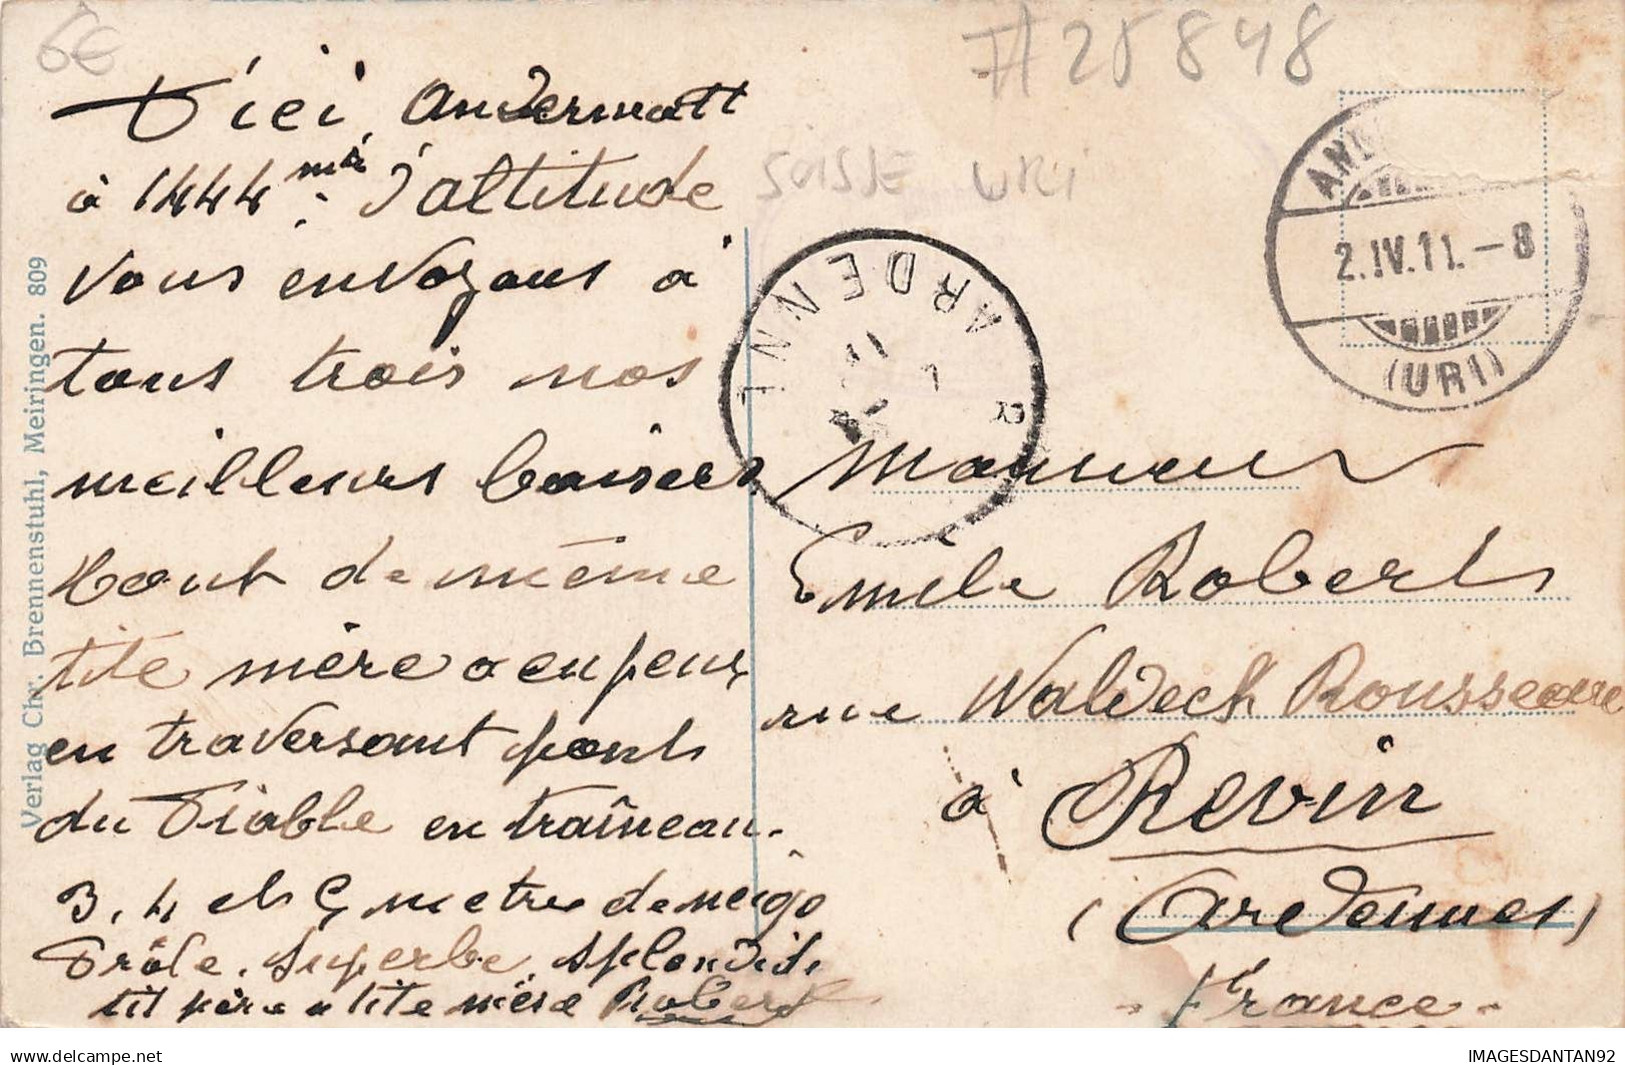 6€
#25848
SUISSE URI
D'ici, Andermatt
à 1444 mè. d'altitude
vous envoyons à
tous trois nos
meilleurs baisers
tout de même
tite mère a eu peur
en traversant ponts
du Diable en traîneau.
3, 4 et 5 metres de neige
Drôle, Superbe, Splendide
tit père & tite mère Robert
Verlag Chr. Brennenstuhl, Meiringen. 809
ARDENNE
2.IV.11.-8
(URI)
Monsieur
Emile Robert
rue Waldeck Rousseau
à Revin
(Ardennes)
- France -
www.delcampe.net
IMAGESDANTAN92